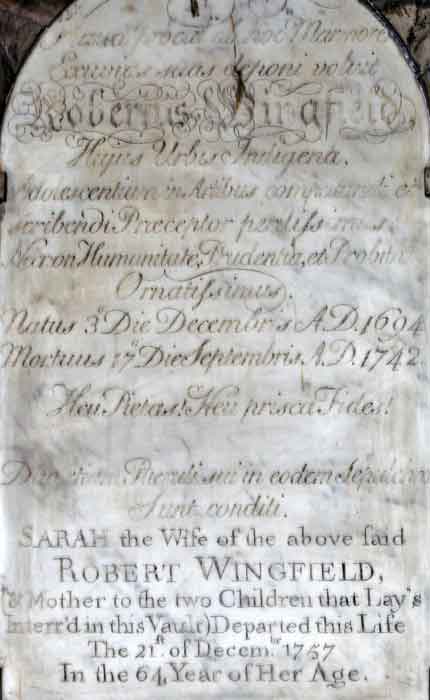 procul ab hoc Marmore
Exuvias suas deponi voluit
Robertus Wingfield,
Hujus Urbis Indigena,
Adolescentium in Artibus computandi et
scribendi Præceptor peritissimus,
Necnon Humanitate, Prudentia, et Probitate
Ornatissimus.
Natus 3° Die Decembris A.D. 1694
Mortuus 17° Die Septembris A.D. 1742.
Heu Pietas! Heu prisca Fides!
Duo Pueruli sui in eodem Sepulcro
Sunt conditi.
SARAH the Wife of the above said
ROBERT WINGFIELD,
(& Mother to the two Children that Lay's
Interr'd in this Vault) Departed this Life
The 21st. of Decembr. 1757
In the 64, Year of Her Age.